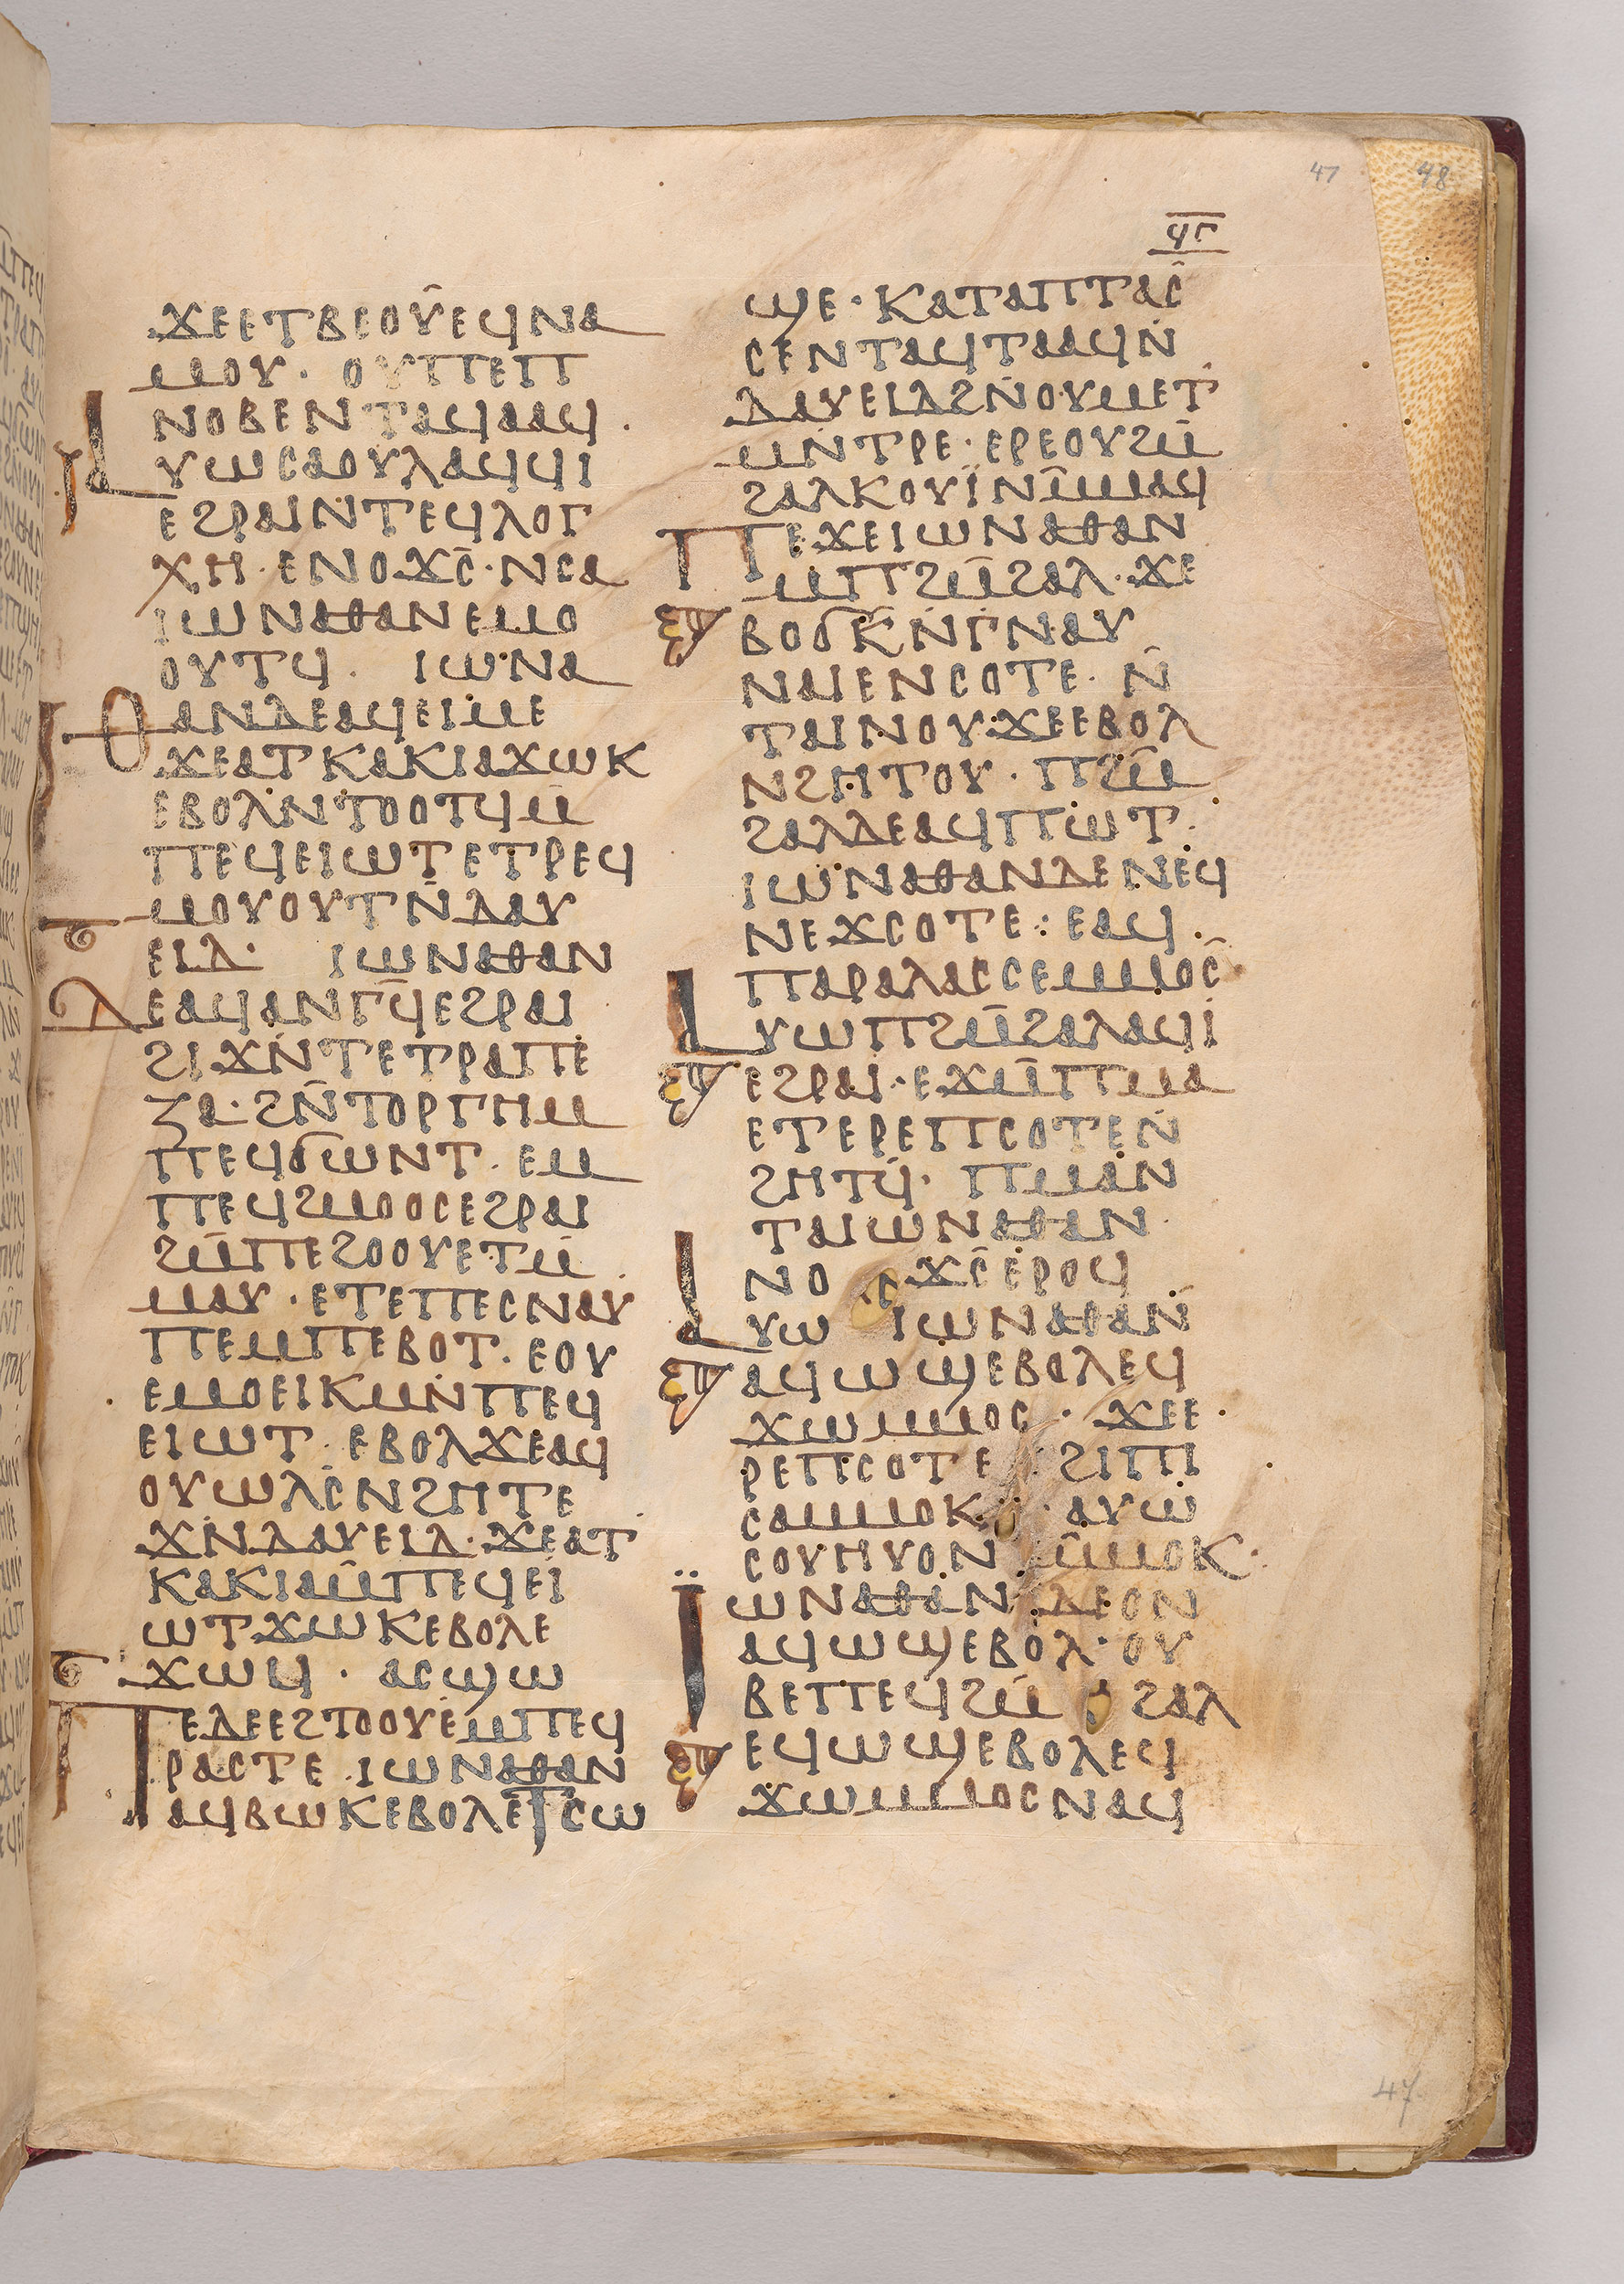 47
48
ϥⲅ
ϫⲉⲉⲧⲃⲉⲟⲩ̄ⲉϥⲛⲁ
ⲙⲟⲩ · ⲟⲩⲡⲉⲡ
ⲛⲟⲃⲉⲛⲧⲁϥⲁⲁϥ ·
ⲁⲩⲱⲥⲁⲟⲩⲗⲁϥϥⲓ
ⲉϩⲣⲁⲓⲛⲧⲉϥⲗⲟⲅ
ⲭⲏ · ⲉⲛⲟϫⲥ̄ · ⲛⲥⲁ
ⲓⲱⲛⲁⲑⲁⲛⲉⲙⲟ
ⲟⲩⲧϥ · ⲓⲱⲛⲁ
ⲑⲁⲛⲇⲉⲁϥⲉⲓⲙⲉ
ϫⲉⲁⲧⲕⲁⲕⲓⲁϫⲱⲕ
ⲉⲃⲟⲗⲛ̇ⲧⲟⲟⲧϥⲙ̄
ⲡⲉϥⲉⲓⲱⲧⲉⲧⲣⲉϥ
ⲙⲟⲩⲟⲩⲧⲛ̄ⲇⲁⲩ
ⲉⲓⲇ · ⲓⲱⲛⲁⲑⲁⲛ
ⲇⲉⲁϥⲁⲛⲅϥ̄ⲉϩⲣⲁⲓ
ϩⲓϫⲛ̇ⲧⲉⲧⲣⲁⲡⲉ
ⲍⲁ · ϩⲛ̄ⲧⲟⲣⲅⲏⲙ
ⲡⲉϥϭⲱⲛⲧ · ⲉⲙ
ⲡⲉϥϩⲙⲟⲟⲥⲉϩⲣⲁⲓ
ϩⲙ̄ⲡⲉϩⲟⲟⲩⲉⲧⲙ̄
ⲙⲁⲩ · ⲉⲧⲉⲡⲉⲥⲛⲁⲩ
ⲡⲉⲙⲡⲉⲃⲟⲧ · ⲉⲟⲩ
ⲉⲙⲟⲉⲓⲕⲙⲛ̇ⲡⲉϥ
ⲉⲓⲱⲧ · ⲉⲃⲟⲗϫⲉⲁϥ
ⲟⲩⲱⲗⲥ̄ⲛϩⲏⲧⲉ
ϫⲛ̇ⲇⲁⲩⲉⲓⲇ · ϫⲉⲁⲧ
ⲕⲁⲕⲓⲁⲙ̄ⲡⲉϥⲉⲓ
ⲱⲧϫⲱⲕⲉⲃⲟⲗⲉ
ϫⲱϥ · ⲁⲥϣⲱ
ⲡⲉⲇⲉⲉϩⲧⲟⲟⲩⲉⲙⲡⲉϥ
ⲣⲁⲥⲧⲉ · ⲓⲱⲛⲁⲑⲁⲛ
ⲁϥⲃⲱⲕⲉⲃⲟⲗⲉⲧⲥⲱ
ϣⲉ · ⲕⲁⲧⲁⲡⲧⲁⲥ̄
ⲥⲉⲛⲧⲁϥⲧⲁⲁϥⲛ̇
ⲇⲁⲩⲉⲓⲇϩⲛ̇ⲟⲩⲙⲉⲧ
ⲙⲛⲧⲣⲉ · ⲉⲣⲉⲟⲩϩⲙ̄
ϩⲁⲗⲕⲟⲩⲓ̈ⲛⲙ̄ⲙⲁϥ
ⲡⲉϫⲉⲓⲱⲛⲁⲑⲁⲛ
ⲙⲡϩⲙ̄ϩⲁⲗ · ϫⲉ
ⲃⲟϭⲕ̄ⲛ̇ⲅⲛⲁⲩ
ⲛⲁⲓⲉⲛⲥⲟⲧⲉ · ⲛ̄
ⲧⲁⲓⲛⲟⲩϫⲉⲉⲃⲟⲗ
ⲛϩⲏⲧⲟⲩ · ⲡϩⲙ̄
ϩⲁⲗⲇⲉⲁϥⲡⲱⲧ ·
ⲓⲱⲛⲁⲑⲁⲛⲇⲉⲛⲉϥ
ⲛⲉϫⲥⲟⲧⲉ : ⲉⲁϥ ·
ⲡⲁⲣⲁⲗⲁⲥⲥⲉⲙⲙⲟⲥ̄
ⲁⲩⲱⲡϩⲙ̄ϩⲁⲗⲁϥⲓ
ⲉϩⲣⲁⲓ · ⲉϫⲙ̄ⲡⲙⲁ
ⲉⲧⲉⲣⲉⲡⲥⲟⲧⲉⲛ̇
ϩⲏⲧϥ̄ · ⲡⲙⲁⲛ
ⲧⲁⲓⲱⲛⲁⲑⲁⲛ
ⲛⲟ ϫⲥ̄ⲉⲣⲟϥ
ⲁⲩⲱ ⲓⲱⲛⲁⲑⲁⲛ̄
ⲁϥⲱϣⲉⲃⲟⲗⲉϥ
ϫⲱⲙⲙⲟⲥ · ϫⲉⲉ ·
ⲣⲉⲡⲥⲟⲧⲉ : ϩⲓⲡⲓ
ⲥⲁⲙⲙⲟⲕ · ⲁⲩⲱ
ⲥⲟⲩⲏⲩⲟⲛ ⲙ̄ⲙⲟⲕ ·
ⲓ̈ⲱⲛⲁⲑⲁⲛ ⲇⲉⲟⲛ
ⲁϥⲱϣⲉⲃⲟⲗ · ⲟⲩ
ⲃⲉⲡⲉϥϩⲙ̄ ϩⲁⲗ
ⲉϥⲱϣⲉⲃⲟⲗⲉϥ
ϫⲱⲙⲙⲟⲥⲛⲁϥ
47